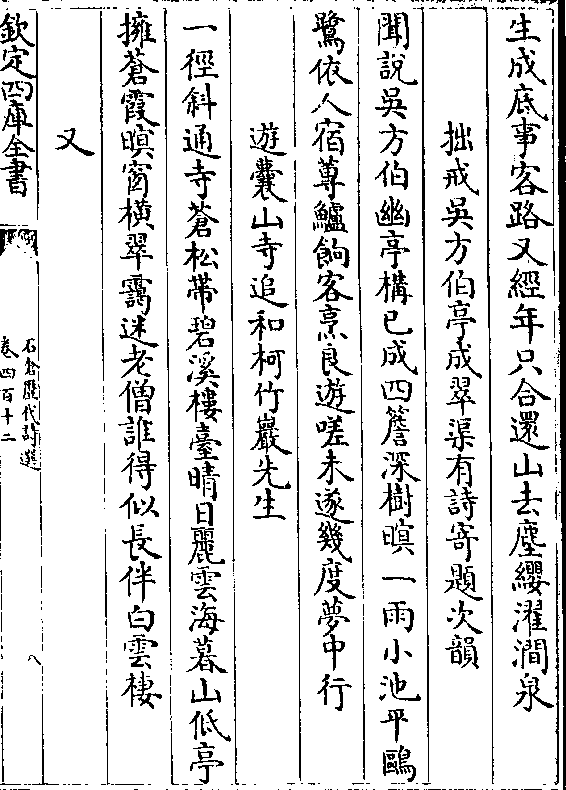 生成底事客路又經年只合還山去塵纓濯澗泉
拙戒吳方伯亭成翠渠有詩寄題次韻
聞說吳方伯幽亭構已成四簷深樹暝一雨小池平鷗
鷺依人宿蓴鱸餉客烹良遊嗟未遂幾度夢中行
遊囊山寺追和柯竹巖先生
一徑斜通寺蒼松帶碧溪樓臺晴日麗雲海暮山低亭
擁蒼霞暝窗橫翠靄迷老僧誰得似長伴白雲棲
又
欽定四庫全書
石倉歷代詩選
卷四百十二
八